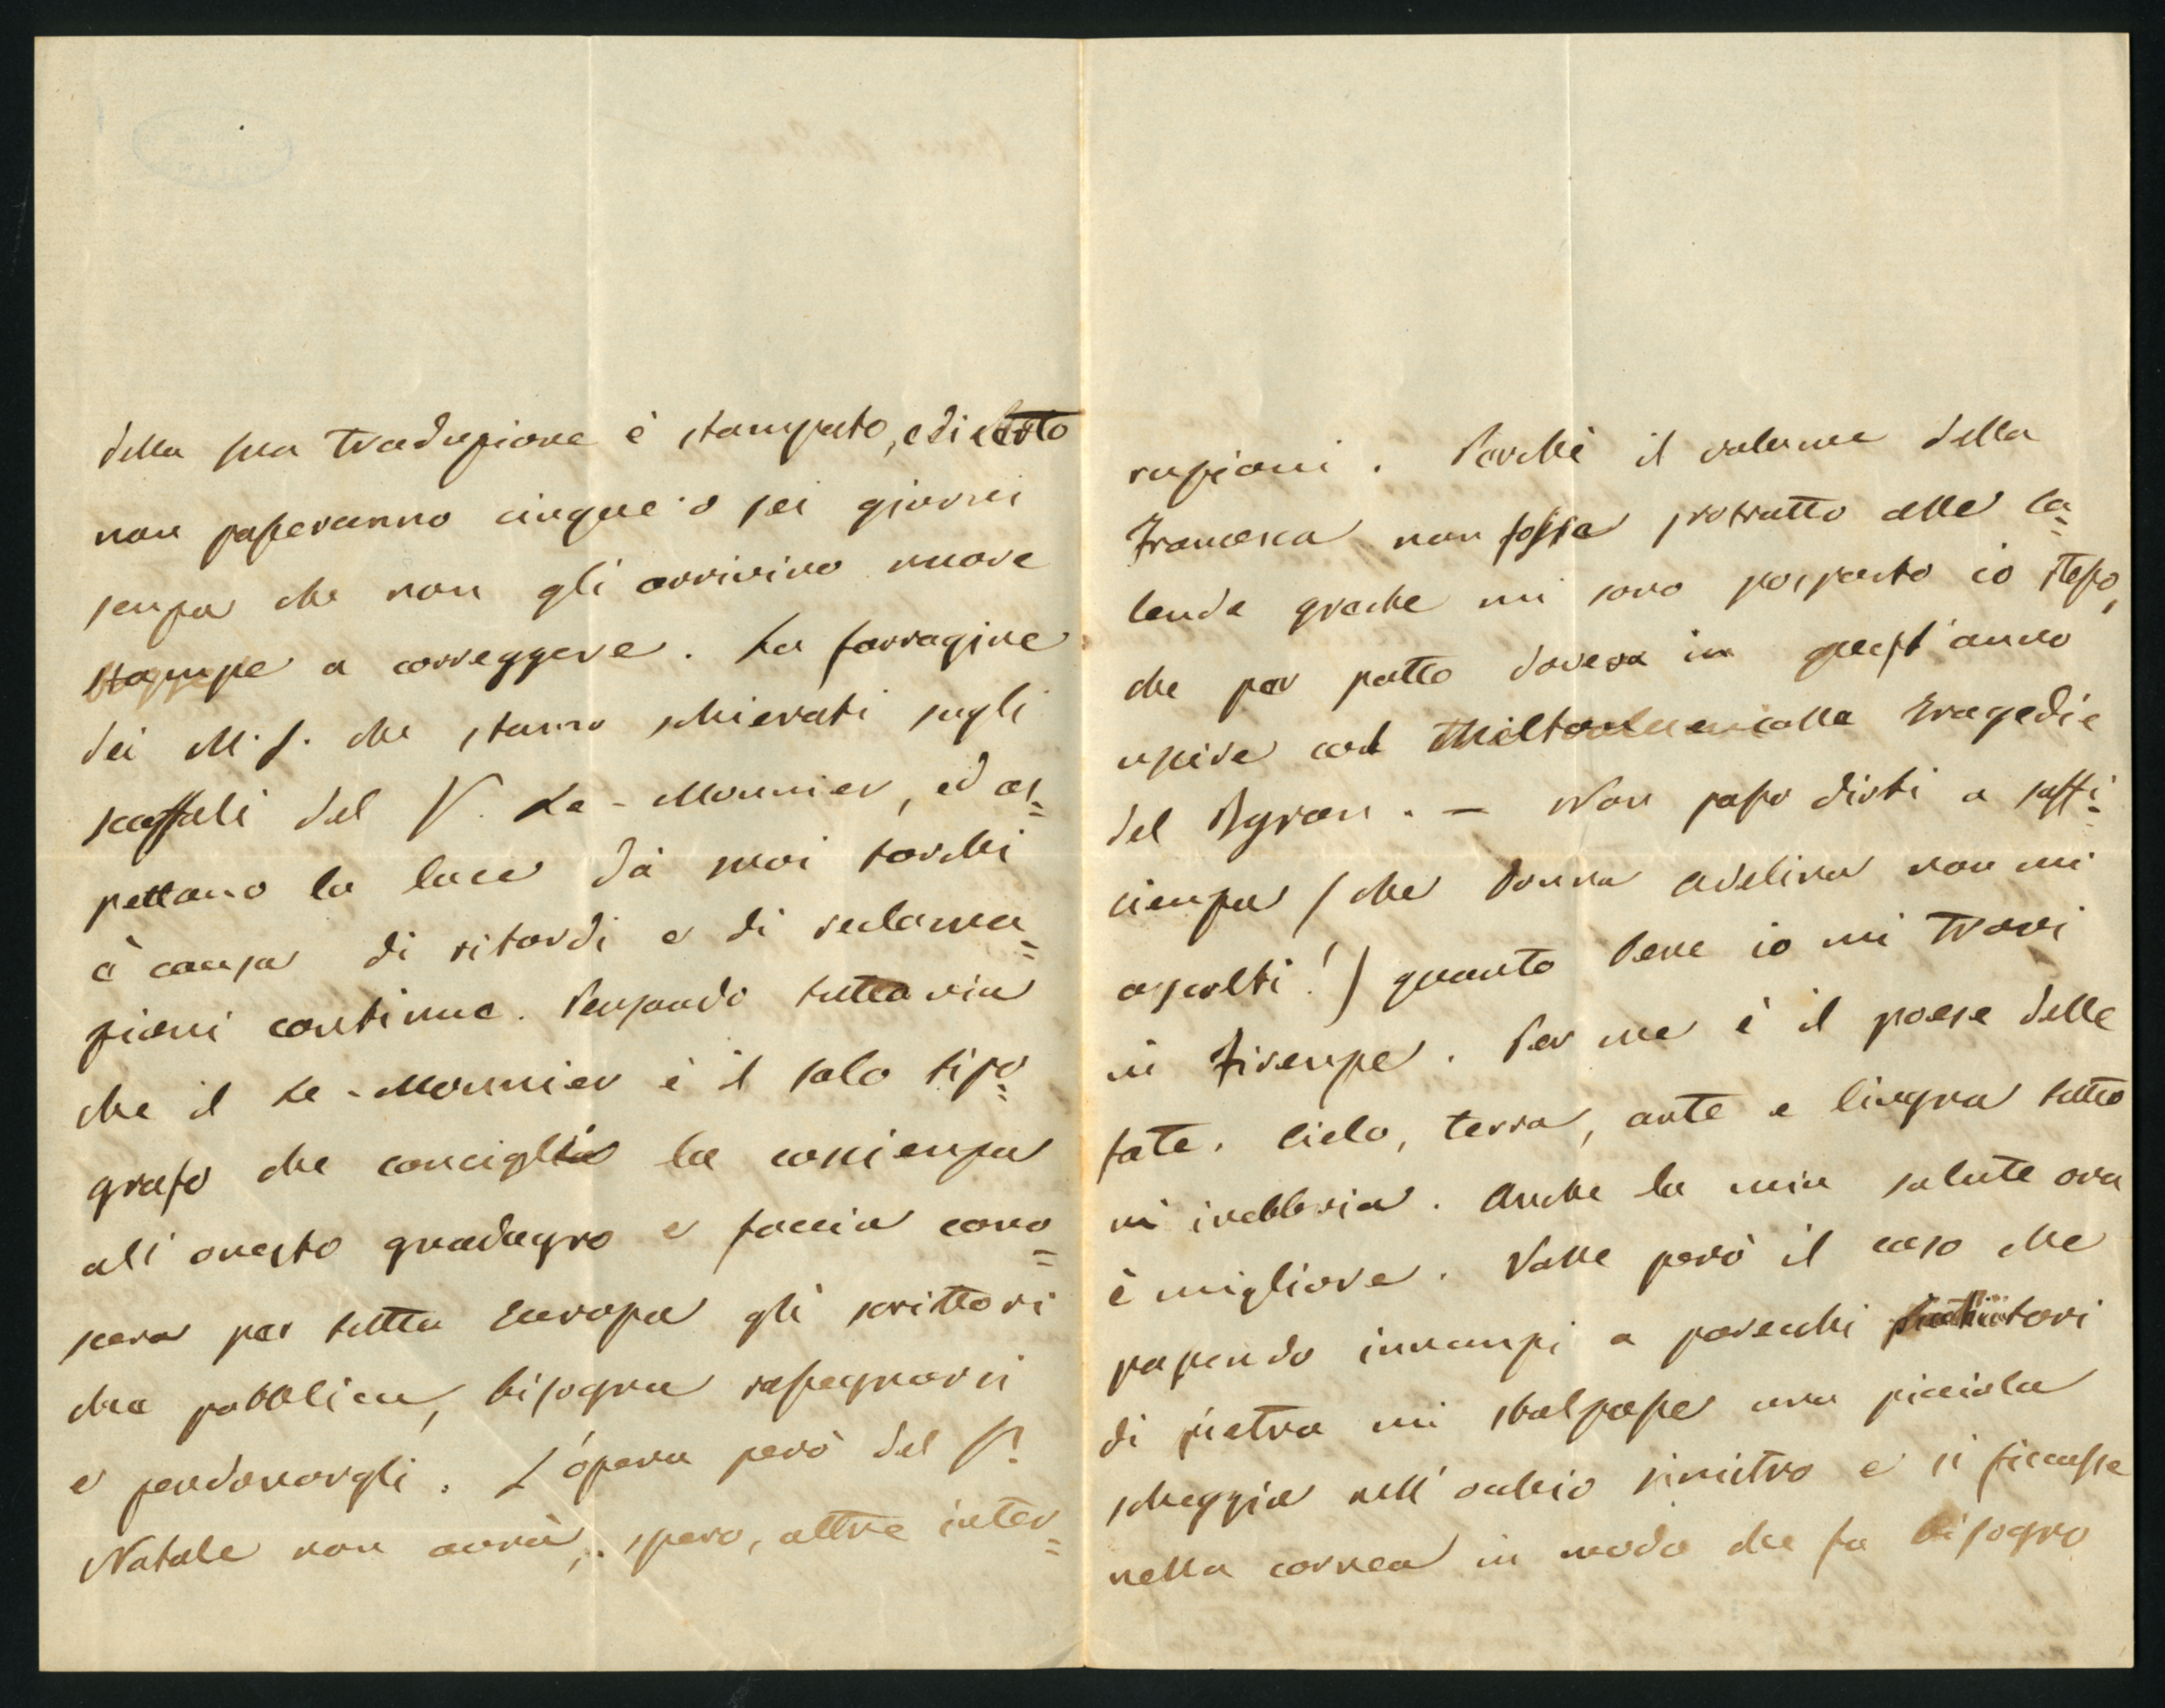 della sua traduzione è stampato, e di certo
non passeranno cinque o sei giorni
senza che non gli arrivino nuove
stampe a correggere. La farragine
dei M.S. che stanno schierati sugli
scaffali del S.r Le-Monnier, ed as=
pettano la luce da' suoi torchi
è causa di ritardi e di reclama=
zioni continue. Pensando tuttavia
che il Le-Monnier è il solo tipo=
grafo che conciglia la coscienza
all'onesto guadagno e faccia cono=
scere per tutta Europa gli scrittori
che pubblica, bisogna rassegnarsi
e perdonargli. L'opera però del S.r
Natale non avrà, spero, altre inter=
ruzioni. Perchè il volume della
Francesca non fosse protratto alle ca=
lende greche mi sono posposto io stesso,
che per patto doveva in quest'anno
uscire col colle tragedie
del Byron. — Non posso dirti a suffi=
cienza (che Donna Adelina non mi
ascolti!) quanto bene io mi trovi
in Firenze. Per me è il paese delle
fate. Cielo, terra, arte e lingua tutto
mi inebbria. Anche la mia salute ora
è migliore. Volle però il caso che
passando innanzi a parecchi
di pietra mi sbalzasse una picciola
scheggia nell'occhio sinistro e si ficcasse
nella cornea in modo che fu bisogno